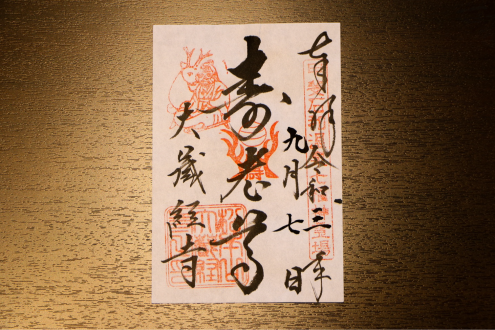 奉拝 令和三年
九月七日
寿老尊
大蔵経寺